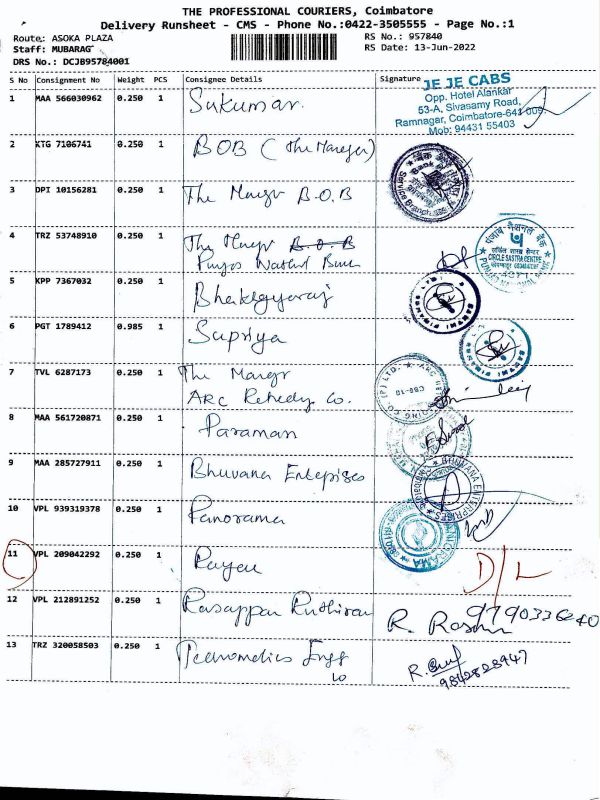 THE PROFESSIONAL COURIERS, Coimbatore
Delivery Runsheet - CMS - Phone No.:0422-3505555 - Page No.:1
Route: ASOKA PLAZA
RS No.: 957840
Staff: MUBARAG
RS Date: 13-Jun-2022
DRS No.: DCJB95784001
S No Consignment No Weight PCS Consignee Details Signature
JE JE CABS
Opp. Hotel Alankar
53-A, Sivasamy Road,
Ramnagar, Coimbatore-641 009.
Mob: 94431 55403
1 MAA 566030962 0.250 1 Sukumar.
2 KTG 7106741 0.250 1 BOB (The Manager)
3 DPI 10156281 0.250 1 The Mangr B.O.B
4 TRZ 53748910 0.250 1 The Mangr B.O.B
Bank
पंजाब नैशनल बैंक
CIRCLE SASTRA CENTRE
5 KPP 7367032 0.250 1
6 PGT 1789412 0.985 1 Supriya
7 TVL 6287173 0.250 1 The Mangr
ARC Co.
8 MAA 561720871 0.250 1 Paraman
9 MAA 285727911 0.250 1 Bhuvana Enteprises
BHUVANA ENTERPRISES
10 VPL 939319378 0.250 1 Panorama
11 VPL 209042292 0.250 1 D/L
12 VPL 212891252 0.250 1 Rasappan
9790336240
13 TRZ 320058503 0.250 1 Engg
Co
9842828947